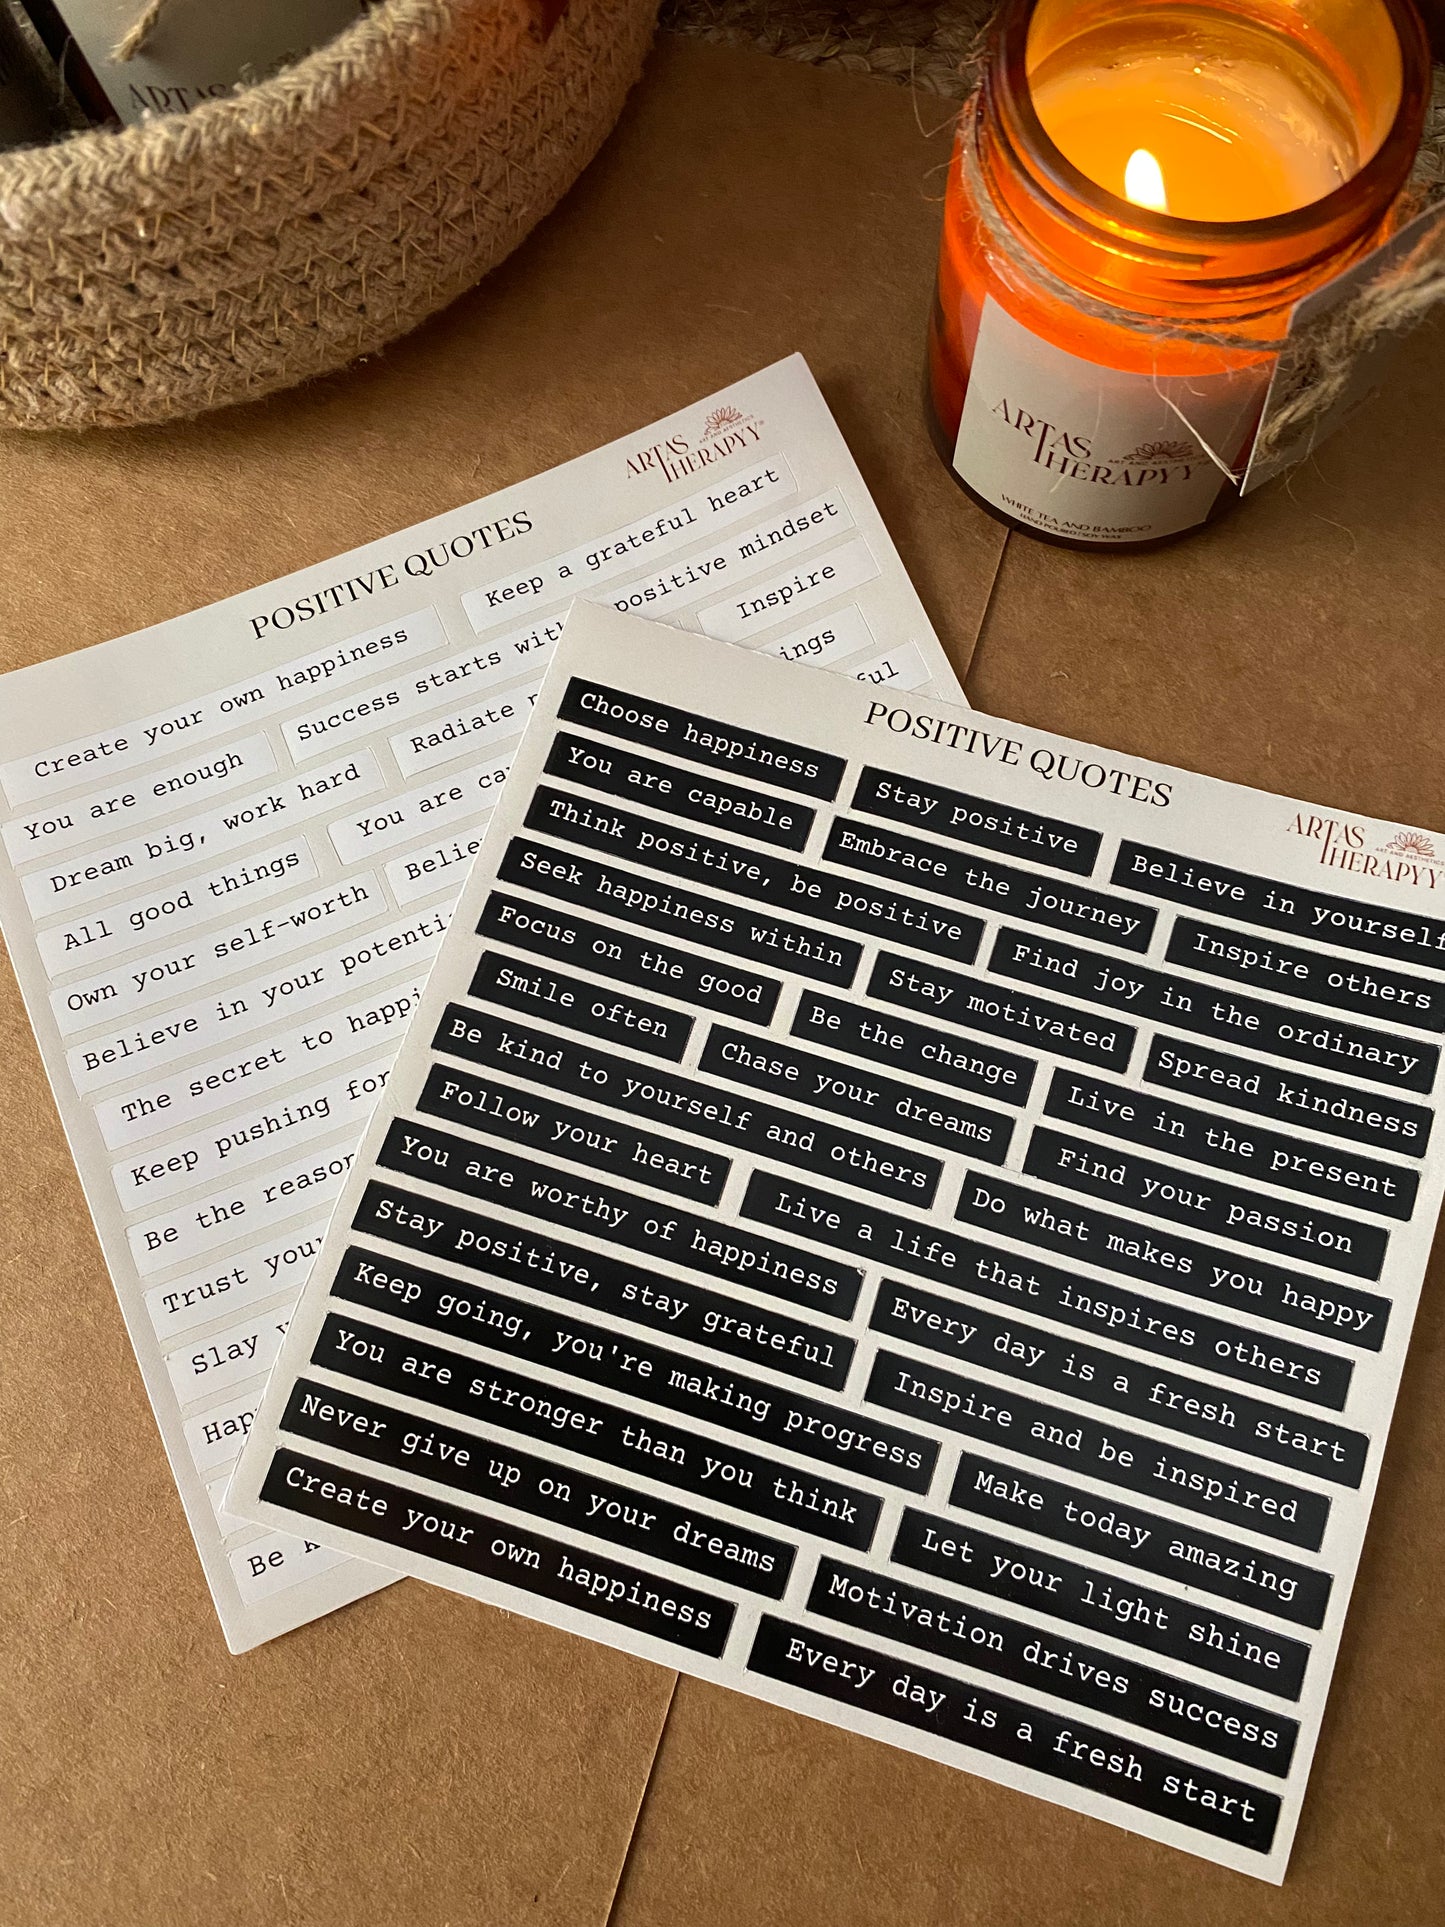 ARTAS
ARTAS
THERAPYY
ART AND AESTHETICS
WHITE TEA AND BAMBOO
HAND POURED | SOY WAX
ARTAS
THERAPYY
ART AND AESTHETICS
POSITIVE QUOTES
Create your own happiness
Keep a grateful heart
You are enough
Success starts with positive mindset
Dream big, work hard
Radiate
Inspire
All good things
You are
Own your self-worth
Believe in your
The secret to
Keep pushing for
Be the reason
Trust your
Slay
Be
POSITIVE QUOTES
ARTAS
THERAPYY
ART AND AESTHETICS
Choose happiness
Stay positive
Believe in yourself
You are capable
Embrace the journey
Inspire others
Think positive, be positive
Find joy in the ordinary
Seek happiness within
Stay motivated
Spread kindness
Focus on the good
Be the change
Live in the present
Smile often
Chase your dreams
Find your passion
Be kind to yourself and others
Do what makes you happy
Follow your heart
Live a life that inspires others
You are worthy of happiness
Every day is a fresh start
Stay positive, stay grateful
Inspire and be inspired
Keep going, you're making progress
Make today amazing
You are stronger than you think
Let your light shine
Never give up on your dreams
Motivation drives success
Create your own happiness
Every day is a fresh start